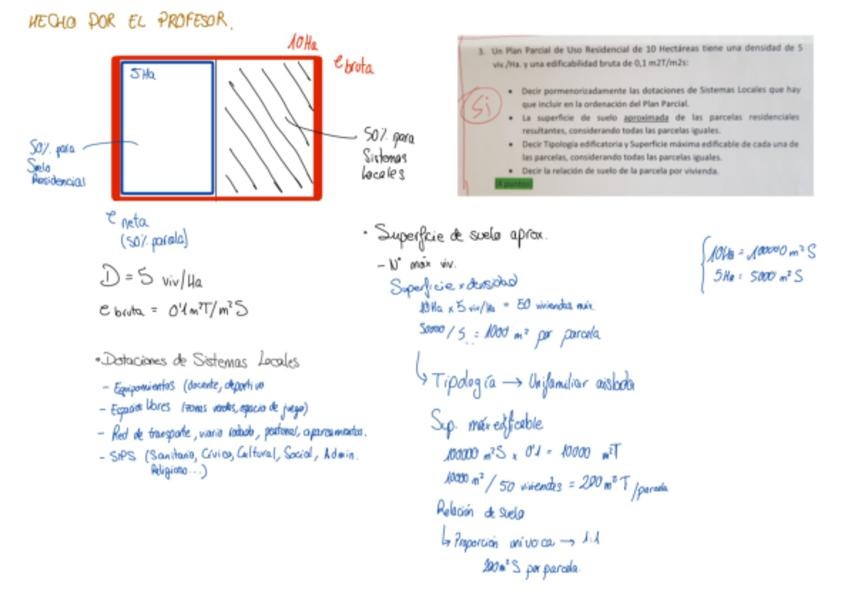 HECHO POR EL PROFESOR.
10Ha
e bruta
5Ha
50% para
Suelo
Residencial
50% para
Sistemas
Locales
e neta
(50% parcela)
D = 5 viv/Ha
e bruta = 0'1 m²T/m²S
• Dotaciones de Sistemas Locales
- Equipamientos (docente, deportivo
- Espacios libres (zonas verdes, espacio de juego)
- Red de transporte, viario rodado, peatonal, aparcamientos.
- SIPS (Sanitario, Cívico, Cultural, Social, Admin.
Religioso...)
3. Un Plan Parcial de Uso Residencial de 10 Hectáreas tiene una densidad de 5
viv./Ha. y una edificabilidad bruta de 0,1 m2T/m2s:
Si
• Decir pormenorizadamente las dotaciones de Sistemas Locales que hay
que incluir en la ordenación del Plan Parcial.
• La superficie de suelo aproximada de las parcelas residenciales
resultantes, considerando todas las parcelas iguales.
• Decir Tipología edificatoria y Superficie máxima edificable de cada una de
las parcelas, considerando todas las parcelas iguales.
• Decir la relación de suelo de la parcela por vivienda.
• Superficie de suelo aprox.
- Nº máx viv.
Superficie x densidad
10Ha x 5 viv/Ha = 50 viviendas máx
50000 / 5 = 1000 m² por parcela
10Ha = 100000 m²S
5Ha = 5000 m²S
↳ Tipología → Unifamiliar aislada
Sup. máx edificable
100000 m²S x 0'1 = 10000 m²T
10000 m² / 50 viviendas = 200 m²T /parcela
Relación de suelo
↳ Proporción unívoca → 1:1
200m²S por parcela